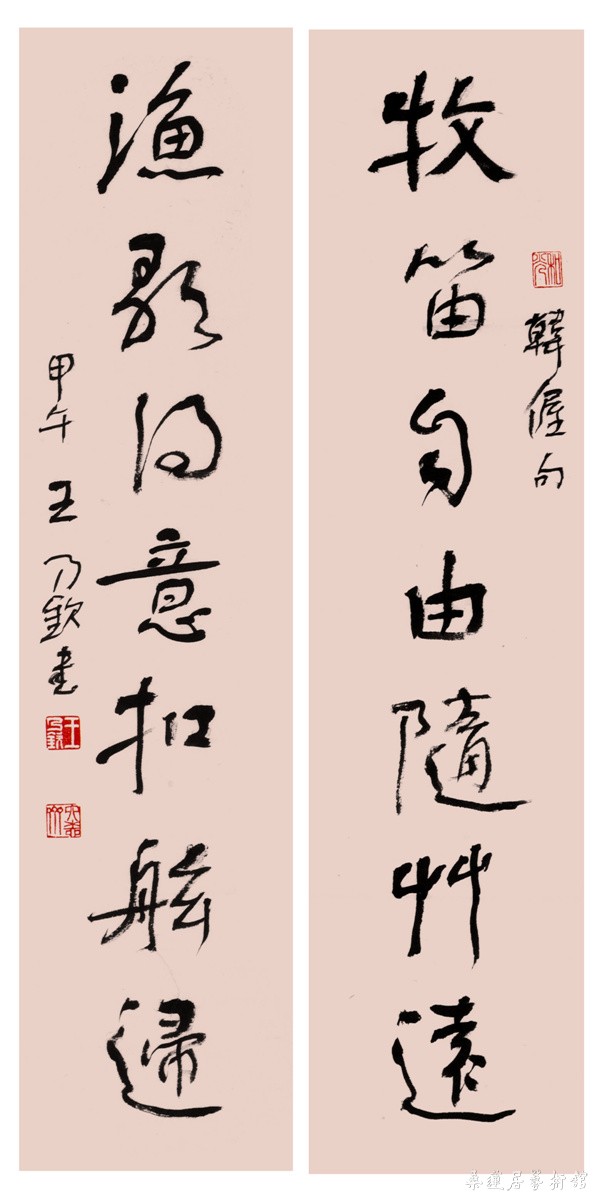 韓偓句
牧笛自由隨艸遠
漁歌得意扣舷歸
甲午 王乃欽書
王乃欽
桑蓮居藝術館